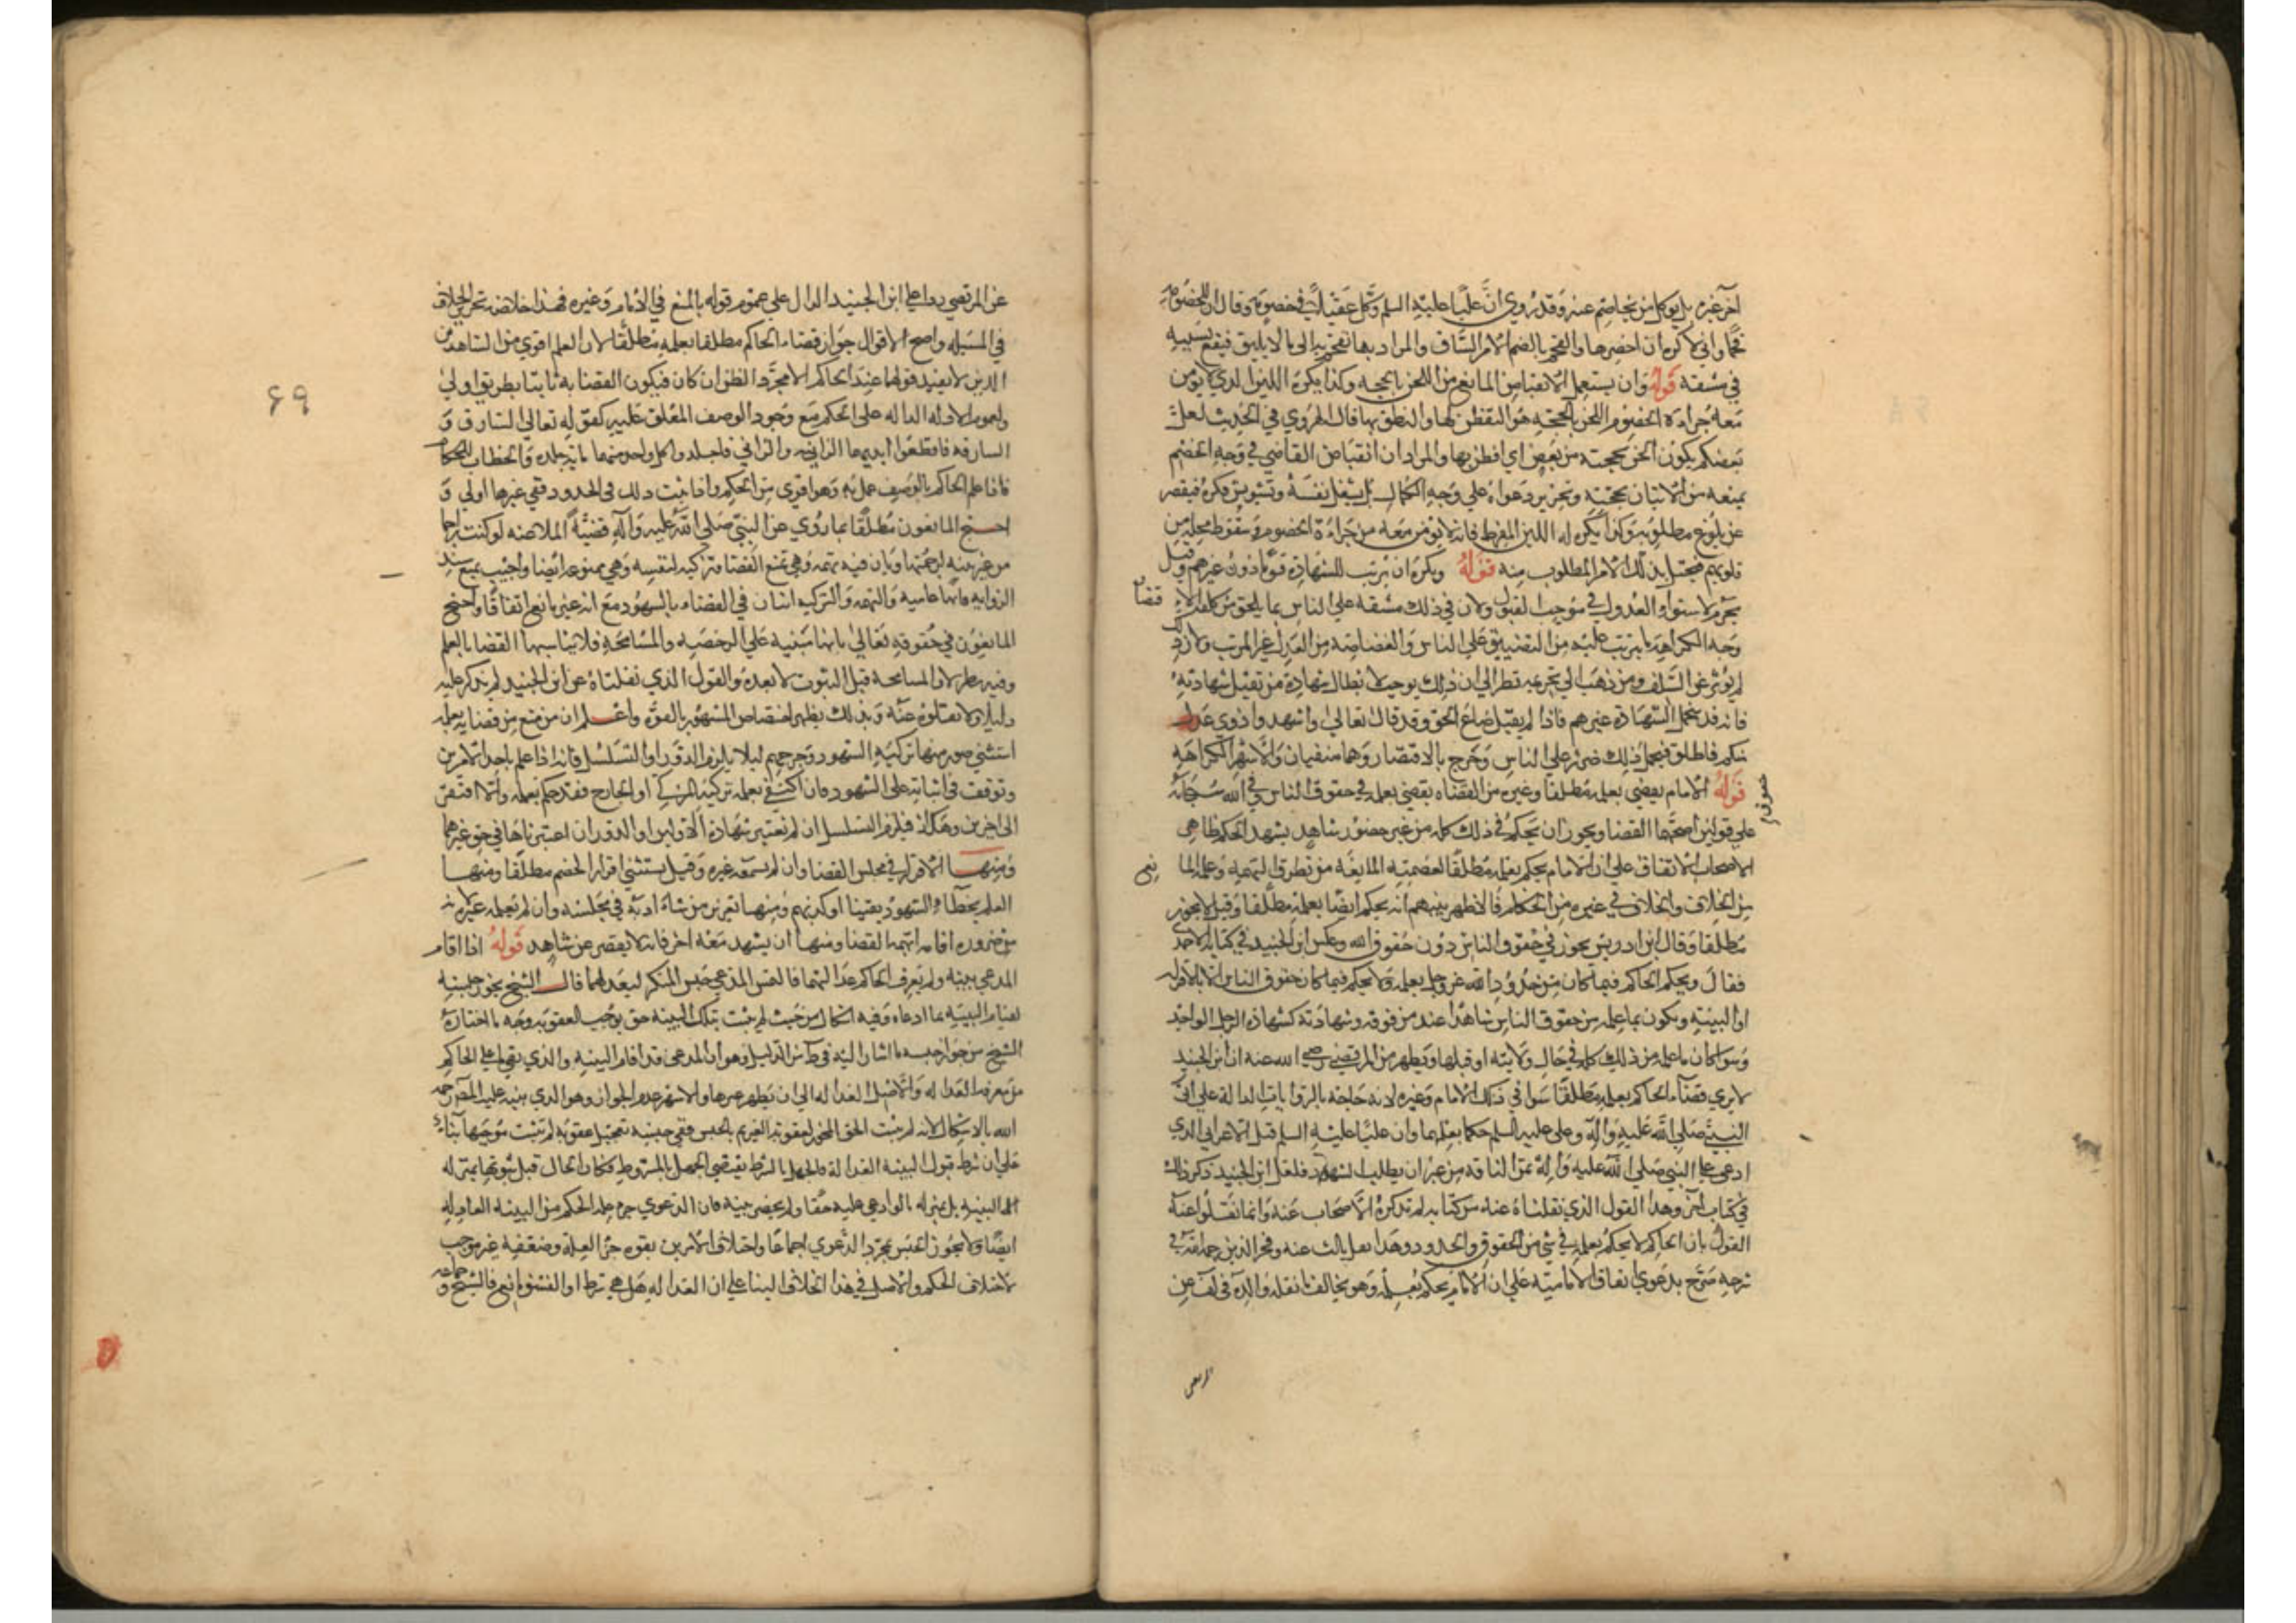 آخر غيره بل يوكل من يخاصم عنه وقد روي ان عليا عليه السلم وكل عقيلا في خصومة وقال ان للخصومة
قحما واني لاكره ان احضرها والقحم بالضم الامر الشاق والمراد بها تقحم به الى ما لا يليق فيقع بسببه
في مشقة قوله وان يستعمل الانقباض المانع من اللحن بالحجة وكذا يكره اللين الذي لا يومن
معه جراءة الخصوم اللحن بالحجة هو التفطن لها والنطق بها قال الهروي في الحديث لعل
بعضكم يكون الحن بحجته من بعض اي افطن بها والمراد ان انقباض القاضي في وجه الخصم
يمنعه من الاتيان بحجته وتحرير دعواه على وجه الكمال بل يشغل نفسه وتشويش فكره فيقصر
عن بلوغ مطلوبه وكذا يكره له اللين المفرط فانه لا يومن معه من جراءة الخصوم وسقوط محله من
قلوبهم فيختل بذلك الامر المطلوب منه قوله ويكره ان يرتب للشهادة قوما دون غيرهم وقيل
يحرم لاستواء العدول في موجب القبول ولان في ذلك مشقة على الناس بما يلحق من كلفة الاقتضا
وجه الكراهة ما يترتب عليه من التضييق على الناس والغضاضة من العدل غير المرتب ولان ذلك
لم يؤثر عن السلف ومن ذهب الى تحريمه نظر الى ان ذلك يوجب لا بطال شهادة من تقبل شهادته
فانه قد يتحمل الشهادة غيرهم فاذا لم يقبل ضاع الحق وقد قال تعالى واشهدوا ذوي عدل
منكم فاطلق فيحمل ذلك ضرر على الناس وحرج بالاقتصار وهما منفيان والاشهر الكراهة
قوله الامام يقضي بعلمه مطلقا وغيره من القضاة يقضي بعلمه في حقوق الناس وفي الله سبحانه
على قولين اصحهما القضا ويجوز ان يحكم في ذلك كله من غير حضور شاهد يشهد الحكم ظاهر
الاصحاب الاتفاق على ان الامام يحكم بعلمه مطلقا لعصمته المانعة من تطرق التهمة وعلمه المانع
من الخلاف والخلاف في غيره من الحكام فالاظهر بينهم انه يحكم ايضا بعلمه مطلقا وقيل لا يجوز
مطلقا وقال ابن ادريس يجوز في حقوق الناس دون حقوق الله وعكس ابن الجنيد في كتابه الاحمدي
فقال ويحكم الحاكم فيما كان من حدود الله عز وجل بعلمه ولا يحكم فيما كان حقوق الناس الا بالاقرار
او البينة ويكون بما علمه من حقوق الناس شاهدا عند من فوقه وشهادته كشهادة الرجل الواحد
وسواء كان ما علمه من ذلك كله في حال ولايته او قبلها ويظهر من المرتضى رضي الله عنه ان ابن الجنيد
لا يرى قضاء الحاكم بعلمه مطلقا سواء في ذلك الامام وغيره لانه حاجه بالروايات الدالة على ان
النبي صلى الله عليه واله وعلى عليه السلم حكما بعلمهما وان عليا عليه السلم قتل الاعرابي الذي
ادعى على النبي صلى الله عليه واله ثمن الناقة من غير ان يطلب الشهود فلعل ابن الجنيد ذكر ذلك
في كتاب آخر وهذا القول الذي نقلناه عنه من كتابه لم تذكره الاصحاب عنه وانما نقلوا عنه
القول بان الحاكم لا يحكم بعلمه في شي من الحقوق والحدود وهذا نقل ثالث عنه وفخر الدين رحمه الله في
شرحه صرح بدعوى اتفاق الامامية على ان الامام يحكم بعلمه وهو يخالف ما نقله والده في المختلف عن
المرتضى
٦٩
عن المرتضى ردا على ابن الجنيد الدال على عموم قوله بالمنع في الامام وغيره فهذا خلاصة تحرير الخلاف
في المسئلة واصح الاقوال جواز قضاء الحاكم مطلقا بعلمه مطلقا لان العلم اقوى من الشاهدين
الذين لا يفيد قولهما عند الحاكم الا مجرد الظن ان كان فيكون القضا به ثابتا بطريق اولى
ولعموم الادلة الدالة على الحكم مع وجود الوصف المعلق عليه كقوله تعالى السارق و
السارقة فاقطعوا ايديهما الزانية والزاني فاجلدوا كل واحد منهما مائة جلدة والخطاب للحكام
فاذا علم الحاكم بالوصف عمل به وهو اقوى من الحكم واذا ثبت ذلك في الحدود ففي غيرها اولى و
احتج المانعون مطلقا بما روي عن النبي صلى الله عليه وآله في قضية الملاعنة لو كنت راجما
من غير بينة لرجمتها وبان فيه تهمة وهي تمنع القضا وتزكية لنفسه وهي ممنوعة ايضا واجيب بمنع سند
الرواية فانها عامية والتهمة والتزكية اتيان في القضاء بالشهود مع انه غير مانع اتفاقا واحتج
المانعون في حقوقه تعالى بانها مبنية على الرخصة والمسامحة فلا يناسبها القضا بالعلم
وفيه نظر لان المسامحة قبل الثبوت لا بعده والقول الذي نقلناه عن ابن الجنيد لم يذكر عليه
دليلا ولا نقلوه عنه وبذلك يظهر اختصاص المشهور بالقوة واعلم ان من منع من قضايه بعلمه
استثنى صورا منها تزكية الشهود وجرحهم ليلا يلزم الدور او التسلسل فانه اذا علم باحد الامرين
وتوقف في اثباته على الشهود فان اكتفى بعلمه تزكية المزكي او الجارح فقد حكم بعلمه والا افتقر
الى اخرين وهكذا فيلزم التسلسل ان لم نعتبر شهادة الاولين او الدور ان اعتبرناها في حق غيرهما
ومنها الاقرار في مجلس القضا وان لم يسمعه غيره وقيل يستثنى اقرار الخصم مطلقا ومنها
العلم بخطأ الشهود يقينا او كذبهم ومنها تعزير من شاء ادبه في مجلسه وان لم يعلمه غيره لانه
من ضرورة اقامة ابهة القضا ومنها ان يشهد معه اخر فانه لا يقصر عن شاهد قوله اذا اقام
المدعي بينة ولم يعرف الحاكم عدالتها فالتمس المدعي حبس المنكر ليعدلهما قال الشيخ يجوز حبسه
لقيام البينة بما ادعاه وفيه اشكال من حيث لم يثبت بتلك البينة حق يوجب العقوبة وجه ما اختاره
الشيخ من جواز حبسه ما اشار اليه في من الدليل وهو ان المدعي قد اقام البينة والذي بقي على الحاكم
من معرفة العدالة والاصل العدالة الى ان يظهر غيرها والاشهر عدم الجواز وهو الذي نبه عليه المصنف رحمه
الله بالاشكال لانه لم يثبت الحق المجوز لعقوبة الغريم بالحبس ففي حبسه تعجيل عقوبة لم يثبت موجبها بناء
على ان شرط قبول البينة العدالة فالجهل بالشرط يقتضي الجهل بالمشروط فكان الحال قبل ثبوتها بمنزلة
البينة بل بمنزلة ما لو ادعى عليه حقا ولم يحضر بينة فان الدعوى جزء علة الحكم من البينة العادلة
ايضا ولا يجوز الحبس بمجرد الدعوى اجماعا واختلاف الامرين بقوة جزء العلة وضعفه غير موجب
لاختلاف الحكم والاصل في هذا الخلاف البنا على ان العدالة هل هي شرط او الفسق مانع فالشيخ و
جماعة